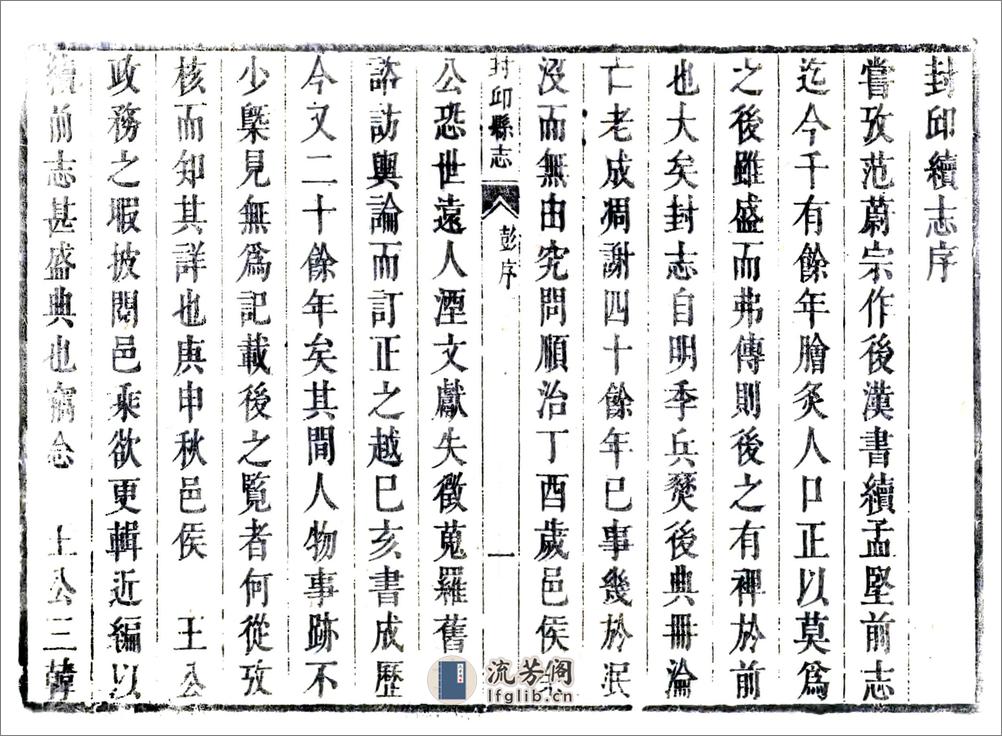 封邱續志序
嘗攷范蔚宗作後漢書續孟堅前志
迄今千有餘年膾炙人口正以莫爲
之後雖盛而弗傳則後之有裨於前
也大矣封志自明季兵燹後典冊淪
亡老成凋謝四十餘年已事幾於泯
沒而無由究問順治丁酉歲邑侯
封邱縣志
彭序
一
公恐世遠人湮文獻失徵蒐羅舊
諮訪輿論而訂正之越巳亥書成歷
今又二十餘年矣其間人物事跡不
少槩見無爲記載後之覽者何從攷
核而知其詳也庚申秋邑侯　王公
政務之暇披閱邑乘欲更輯近編以
續前志甚盛典也竊念　王公三韓
流芳阁
lfglib.cn